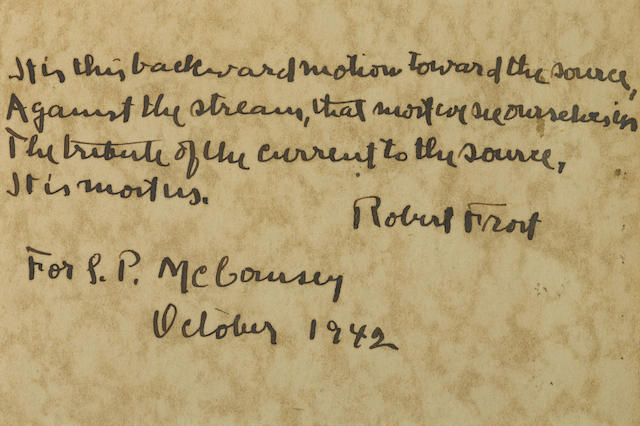 It is this backward motion toward the source,
Against the stream, that most we see ourselves in
The tribute of the current to the source,
It is most us.
Robert Frost
For S. P. McCousey
October 1942